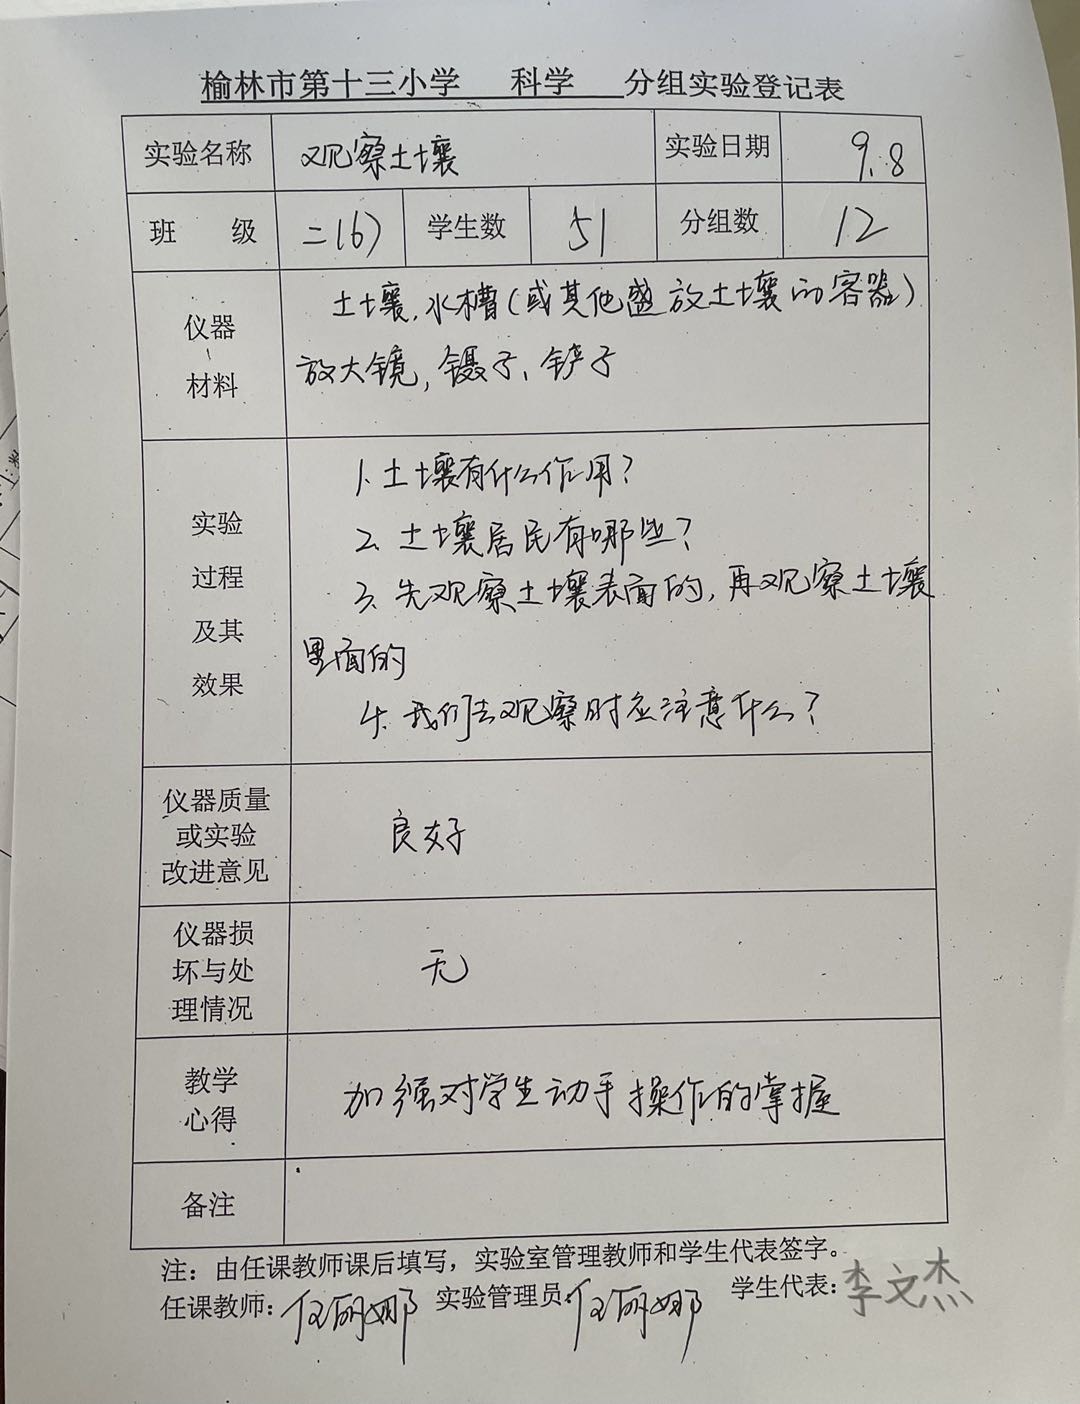 榆林市第十三小学 科学 分组实验登记表
实验名称 观察土壤 实验日期 9.8
班 级 二(6) 学生数 51 分组数 12
仪器
、
材料
土壤,水槽(或其他盛放土壤的容器)
放大镜,镊子、铲子
实验
过程
及其
效果
1.土壤有什么作用?
2.土壤居民有哪些?
3.先观察土壤表面的,再观察土壤
里面的
4.我们去观察时应注意什么?
仪器质量
或实验
改进意见
良好
仪器损
坏与处
理情况
无
教学
心得
加强对学生动手操作的掌握
备注
注:由任课教师课后填写,实验室管理教师和学生代表签字。
任课教师:任丽娜 实验管理员:任丽娜 学生代表:李文杰